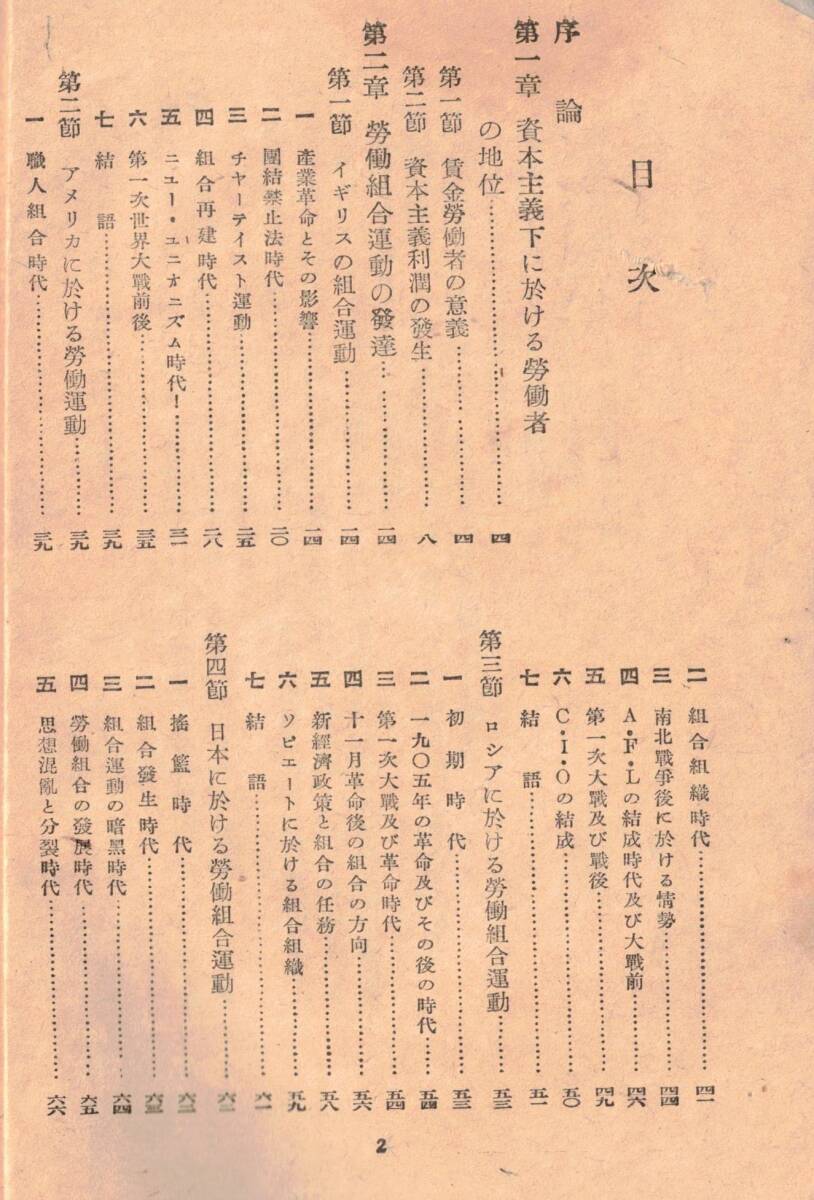 目次
序論
第一章 資本主義下に於ける勞働者
の地位…………四
第一節 賃金勞働者の意義…………四
第二節 資本主義利潤の發生…………八
第二章 勞働組合運動の發達…………一四
第一節 イギリスの組合運動…………一四
一 產業革命とその影響…………一四
二 團結禁止法時代…………二〇
三 チヤーテイスト運動…………二五
四 組合再建時代…………二八
五 ニユー・ユニオニズム時代!…………三一
六 第一次世界大戰前後…………三五
七 結語…………三九
第二節 アメリカに於ける勞働運動…………三九
一 職人組合時代…………三九
二 組合組織時代…………四一
三 南北戰爭後に於ける情勢…………四四
四 A・F・Lの結成時代及び大戰前…………四六
五 第一次大戰及び戰後…………四九
六 C・I・Oの結成…………五〇
七 結語…………五一
第三節 ロシアに於ける勞働組合運動…………五三
一 初期時代…………五三
二 一九〇五年の革命及びその後の時代…………五四
三 第一次大戰及び革命時代…………五四
四 十一月革命後の組合の方向…………五六
五 新經濟政策と組合の任務…………五八
六 ソビエートに於ける組合組織…………五九
七 結語…………六一
第四節 日本に於ける勞働組合運動…………六三
一 搖籃時代…………六三
二 組合發生時代…………六三
三 組合運動の暗黑時代…………六四
四 勞働組合の發展時代…………六五
五 思想混亂と分裂時代…………六六
2